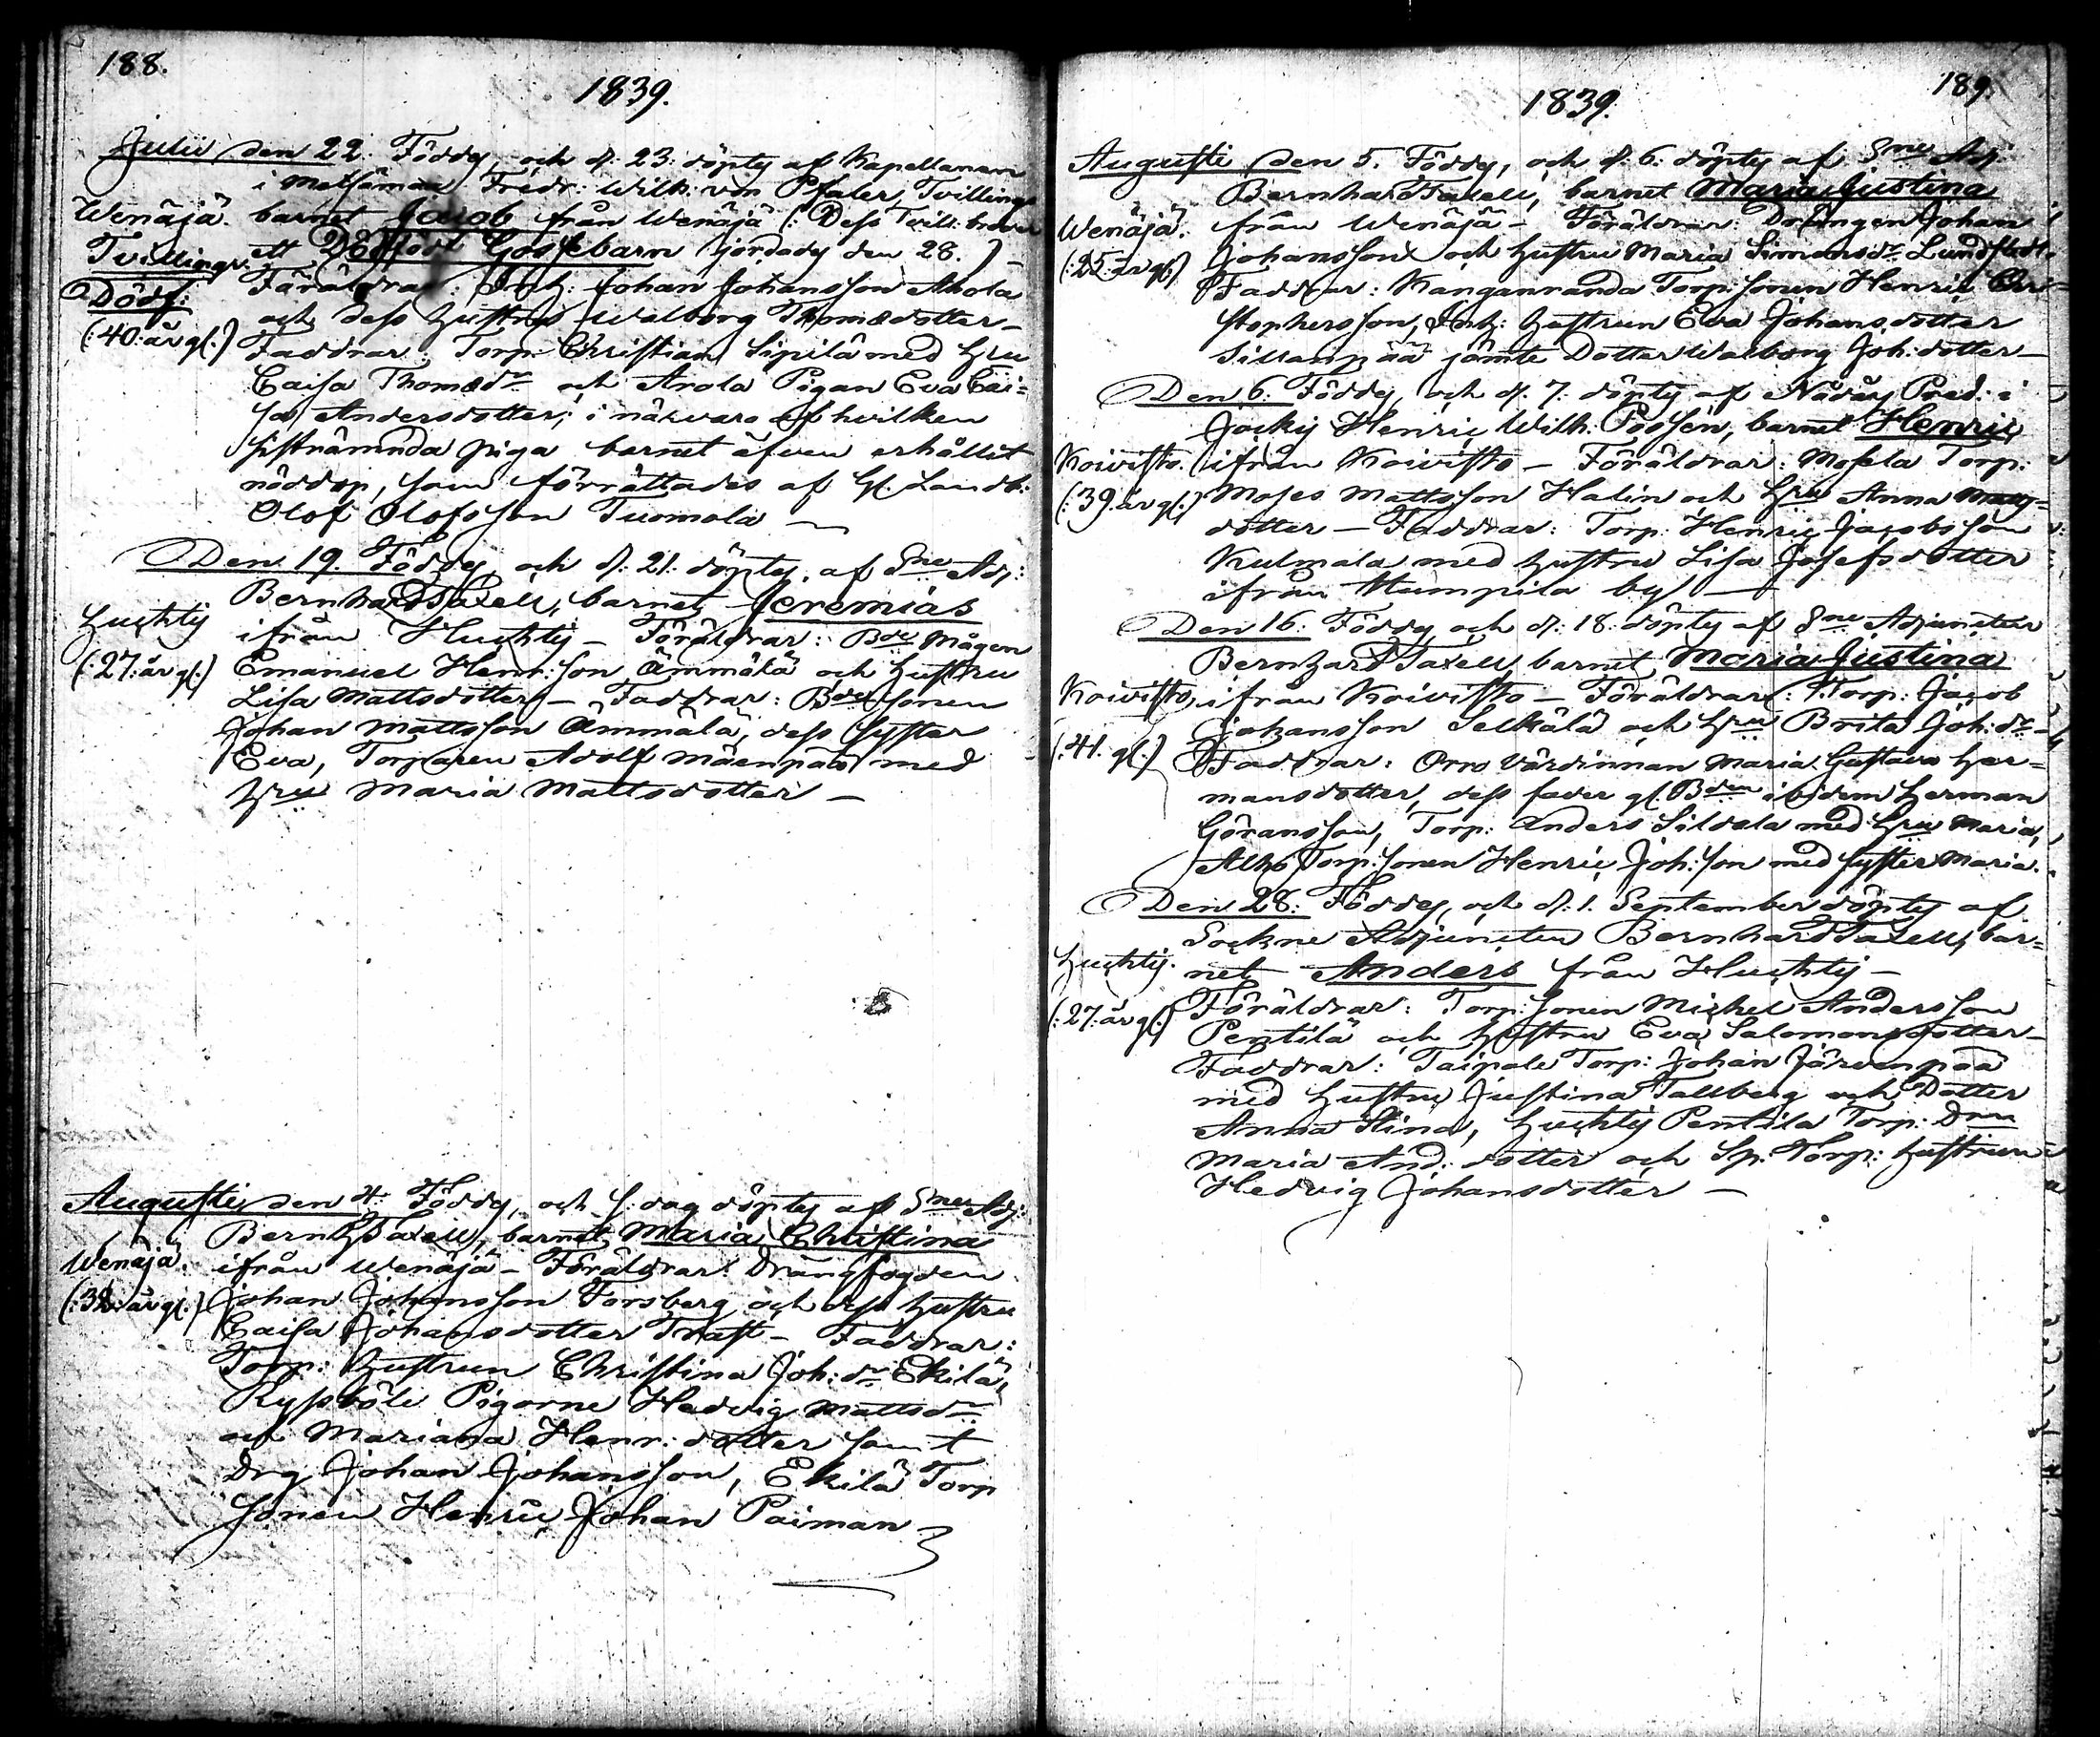 188.
1839.
Julii den 22. Föddes, och d: 23: döptes af Kapellanen
i Metsämaa Fredr: Wilh: von Pfaler, Tvillings
Wenäjä. barnet Jacob från Wenäjä (: Dess Tvill: broder
Tvillings. ett Dödfödt Gossebarn jordades den 28. :) –
Dödf: Föräldrar: Inh: Johan Johansson Ahola
och dess hustru Walborg Thomædotter –
(: 40: år gl:) Faddrar: Torp: Christian Sipilä med hru
Caisa Thomædr och Arola Pigan Eva Cai=
sa Andersdotter, i närvaro af hvilken
sistnämnda piga barnet äfven erhållit
nöddop, som förrättades af gl. Landb:
Olof Olofsson Tuomola –
Den 19. Föddes, och d: 21. döptes, af Sne Adj:
Bernhard Taxell, barnet Jeremias
Huchtis ifrån Huchtis – Föräldrar: Bde Mågen
(: 27: år gl:) Emanuel Henr: son Ämmälä och hustru
Lisa Mattsdotter – Faddrar: Bde sonen
Johan Mattsson Ämmälä, dess syster
Eva, Torparen Adolf Mäenpää med
hru Maria Mattsdotter –
Augusti den 4. Föddes, och s: dag döptes af Sne Adj:
Bernh Taxell, barnet Maria Christina
Wenäjä. ifrån Wenäjä – Föräldrar: Drängfogden
Johan Johansson Forsberg och dess hustru
Caisa Johansdotter Trast – Faddrar:
Torp: hustrun Christina Joh: dr Ekilä,
Rypsböle Pigorne Hedvig Mattsdr
och Mariana Henr: dotter samt
Drg Johan Johansson, Ekilä Torp
sonen Henric Johan Paiman
189.
1839.
Augusti den 5. Föddes, och d: 6: döptes af Sne Adj
Bernhard Taxell, barnet Maria Justina
Wenäjä. från Wenäjä – Föräldrar: Drängen Johan
(: 25: år gl:) Johansson och hustru Maria Simonsdr Lundstedt.
Faddrar: Kanganranda Torp: sonen Henric Chri=
stophersson, Inh: hustrun Eva Johansdotter
Sillanpää jämte Dotter Walborg Joh: dotter –
Den 6: Föddes, och d: 7: döptes af Nådårs Pred: i
Jockis Henric Wilh. Possén, barnet Henric
Koivisto. ifrån Koivisto – Föräldrar: Torp:
(: 39. år gl:) Moses Mattsson Halin och hru Anna
dotter – Faddrar: Torp: Henric Jacobsson
Kulmala med hustru Lisa Josefsdotter
ifrån Humpila by –
Den 16: Föddes, och d: 18: döptes af Sne Adjuncten
Bernhard Taxell, barnet Maria Justina
Koivisto, ifrån Koivisto – Föräldrar: Torp: Jacob
Johansson Selkälä och hru Brita Joh: dr –
(: 41. gl:) Faddrar: Orro värdinnan Maria Gustava Her=
mansdotter, dess fader gl. Bden ibidem Herman
Göransson, Torp: Anders Sildala med hru Maria,
Alho Torp: sonen Henric Joh: son med syster Maria.
Den 28: Föddes, och d: 1. September döptes af
Sockne Adjuncten Bernhard Taxell, bar=
Huchtis. net Anders från Huchtis –
(: 27: år gl:) Föräldrar: Torp: sonen Michel Andersson
Pentilä och hustru Eva Salomonsdotter –
Faddrar: Taipale Torp: Johan Järvenpää
med hustru Justina Tallberg och Dotter
Anna Stina, Huchtis Pentila Torp: Drn
Maria And: dotter och Sp: Torp: hustrun
Hedvig Johansdotter –